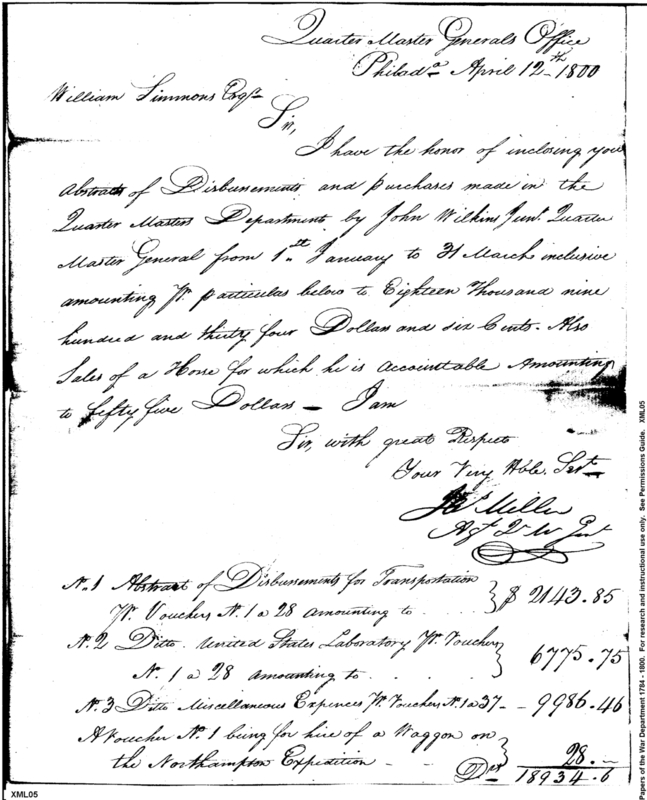 Quarter Master Generals Office
Philada. April 12th. 1800
William Simmons Esqr.
Sir,
I have the honor of inclosing you
Abstracts of Disbursements and purchases made in the
Quarter Masters Department by John Wilkins Junr. Quarter
Master General from 1st. January to 31 March inclusive
amounting Pr. particulars below to Eighteen Thousand nine
hundred and thirty four Dollars and six Cents. Also
Sales of a Horse for which he is accountable Amounting
to fifty five Dollars — I am
Sir, with great Respect
Your Very Hble. Servt.
Miller
Agt Q M Genl
No. 1 Abstract of Disbursements for Transportation
Pr. Vouchers No. 1 a 28 amounting to . . . . } $ 2143.85
No. 2 Ditto . United States Laboratory Pr. Vouchers
No. 1 a 28 amounting to . . . . } 6775.75
No. 3 Ditto Miscellaneous Expences Pr. Vouchers No. 1 a 37 - - 9986.46
A Voucher No. 1 being for hire of a Waggon on
the Northampton Expedition - - } 28. —
Drs 18934.6
XML05
Papers of the War Department 1784 - 1800. For research and instructional use only. See Permissions Guide. XML05